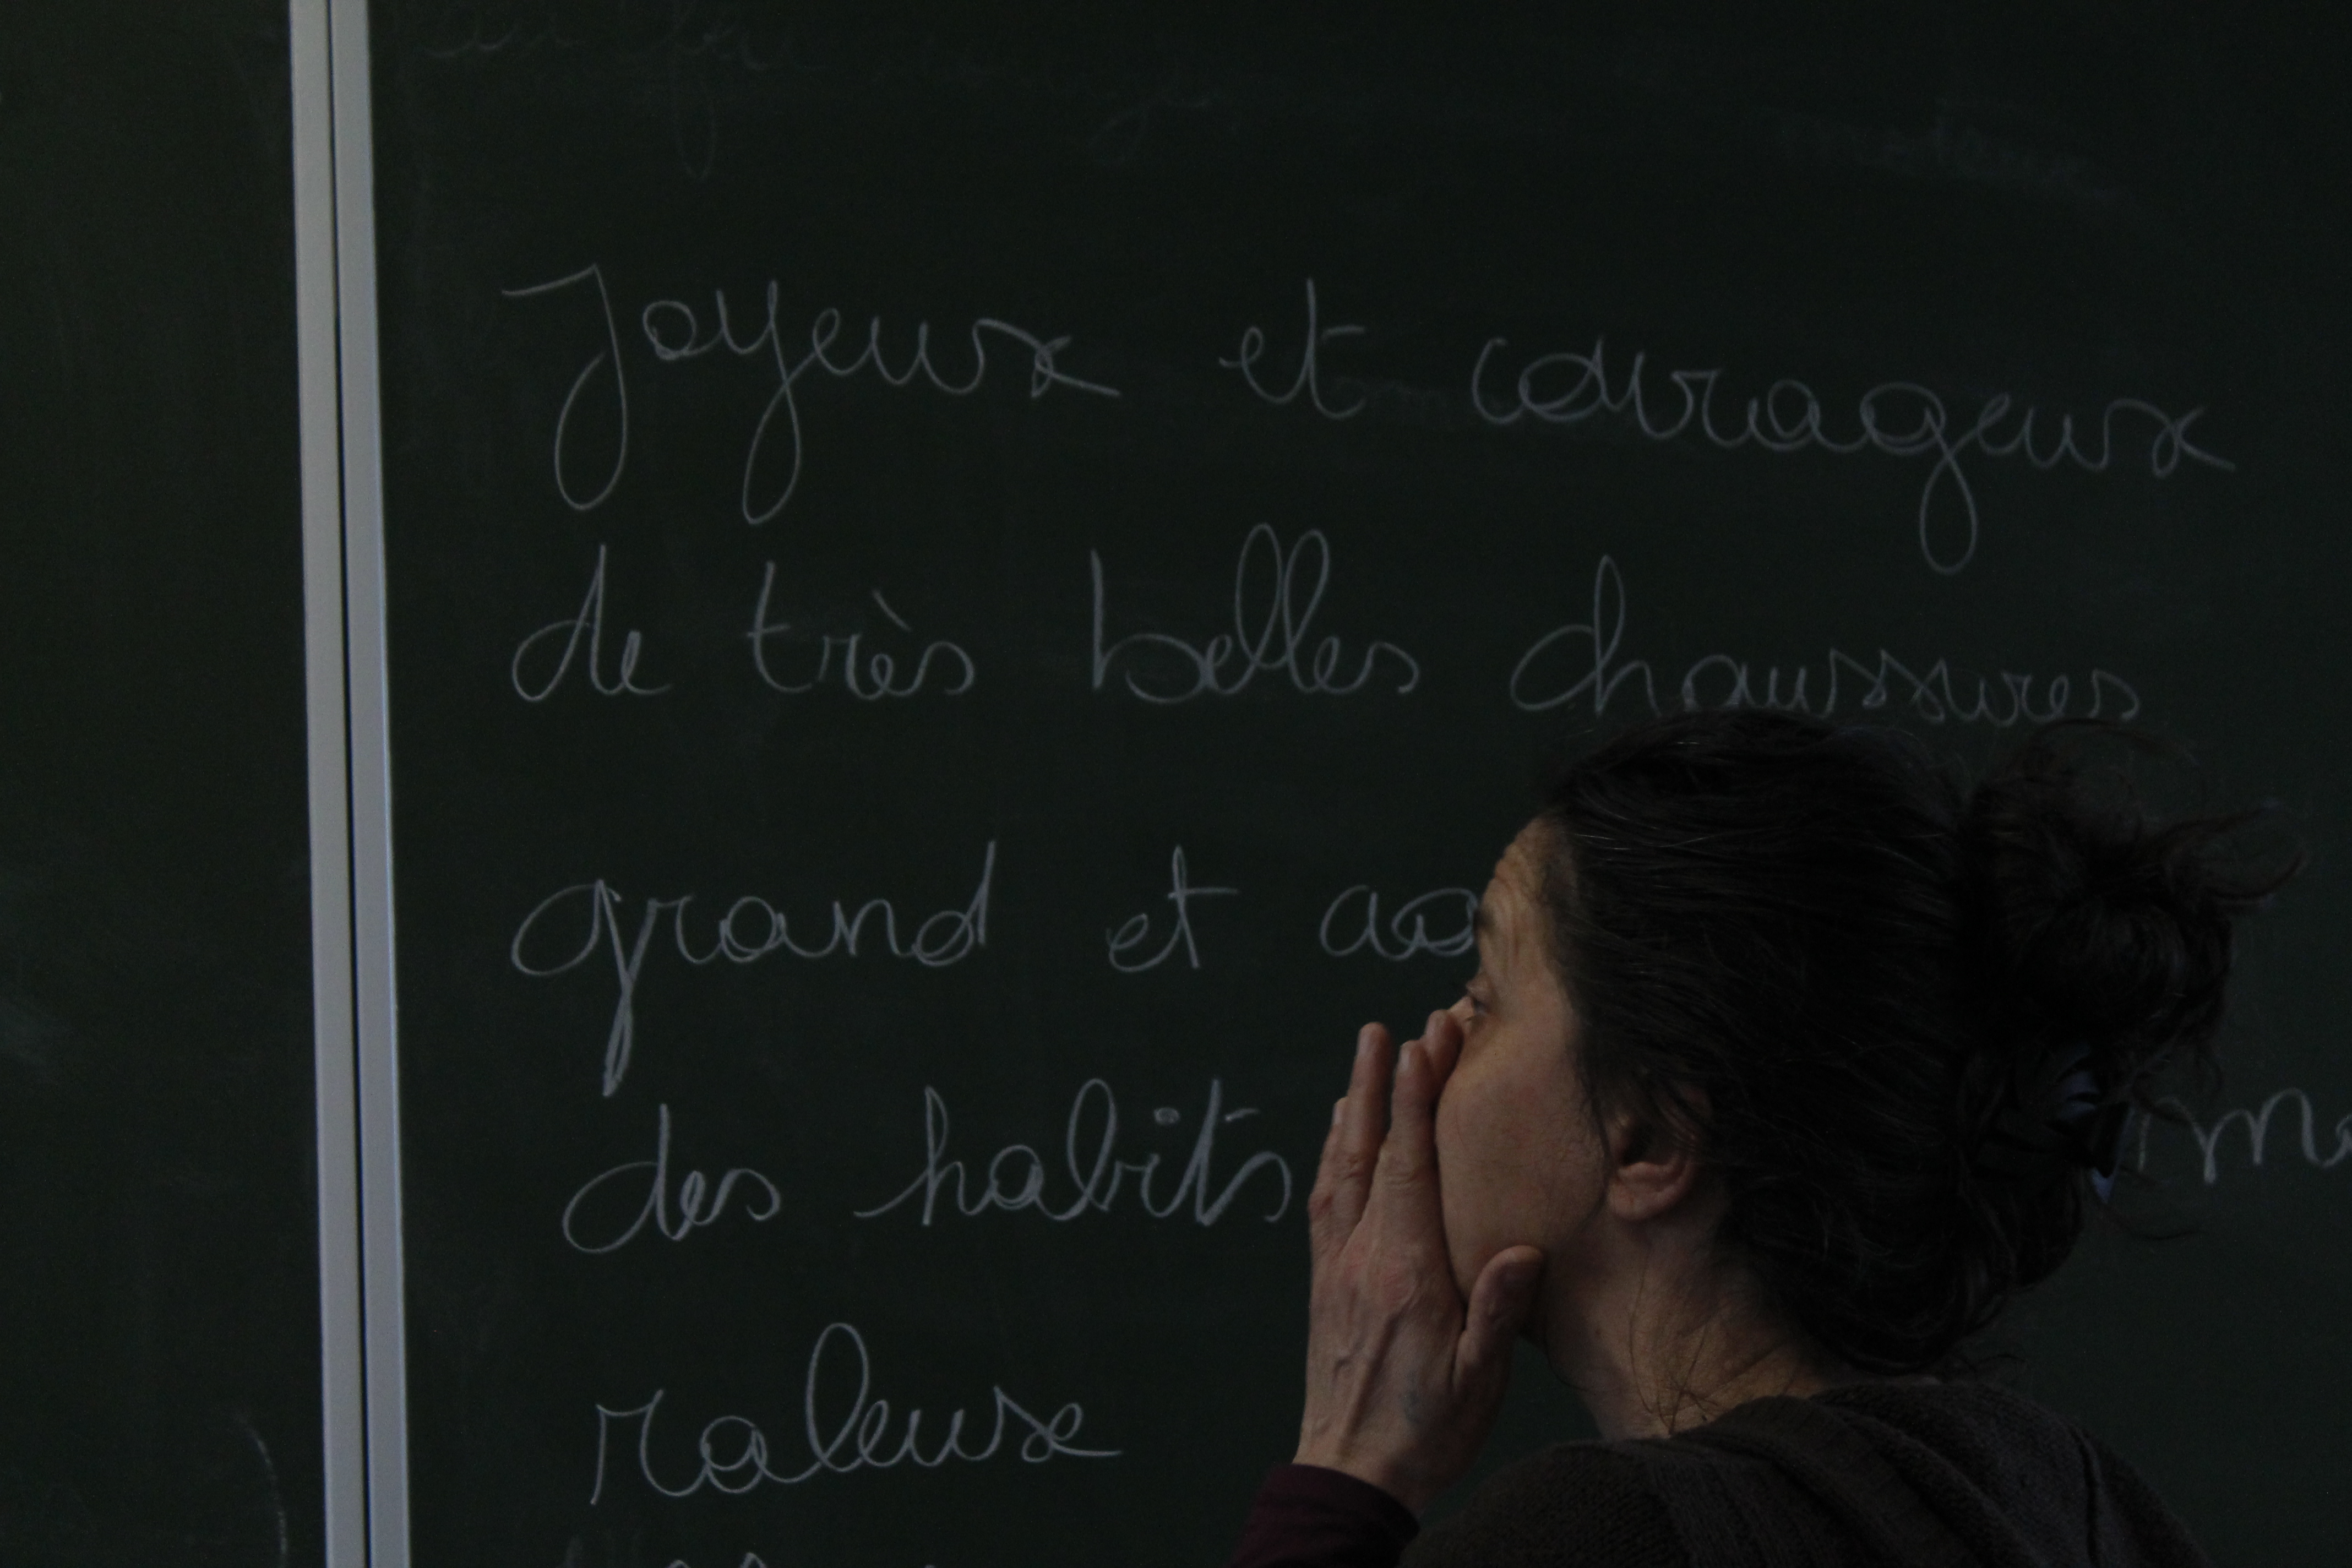 Joyeux et courageux
de très belles chaussures
grand et
des habits
raleux